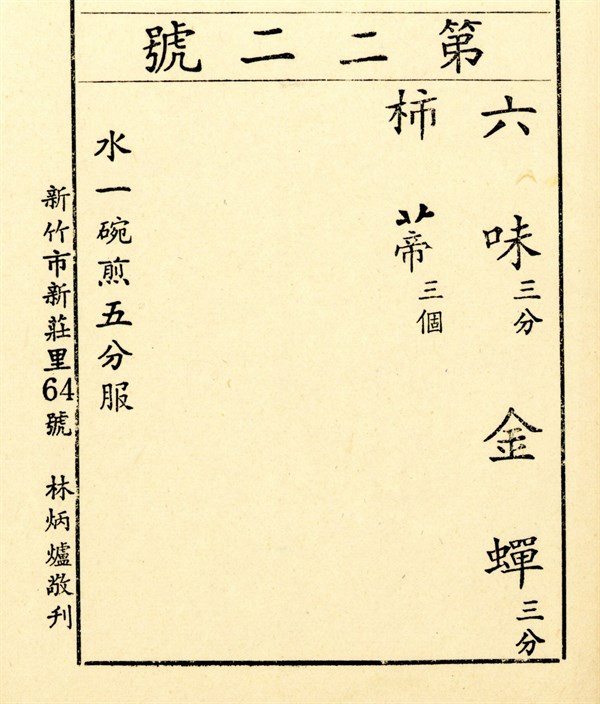 第二二號
六味三分 金蟬三分
柿蒂三個
水一碗煎五分服
新竹市新莊里64號 林炳爐敬刋